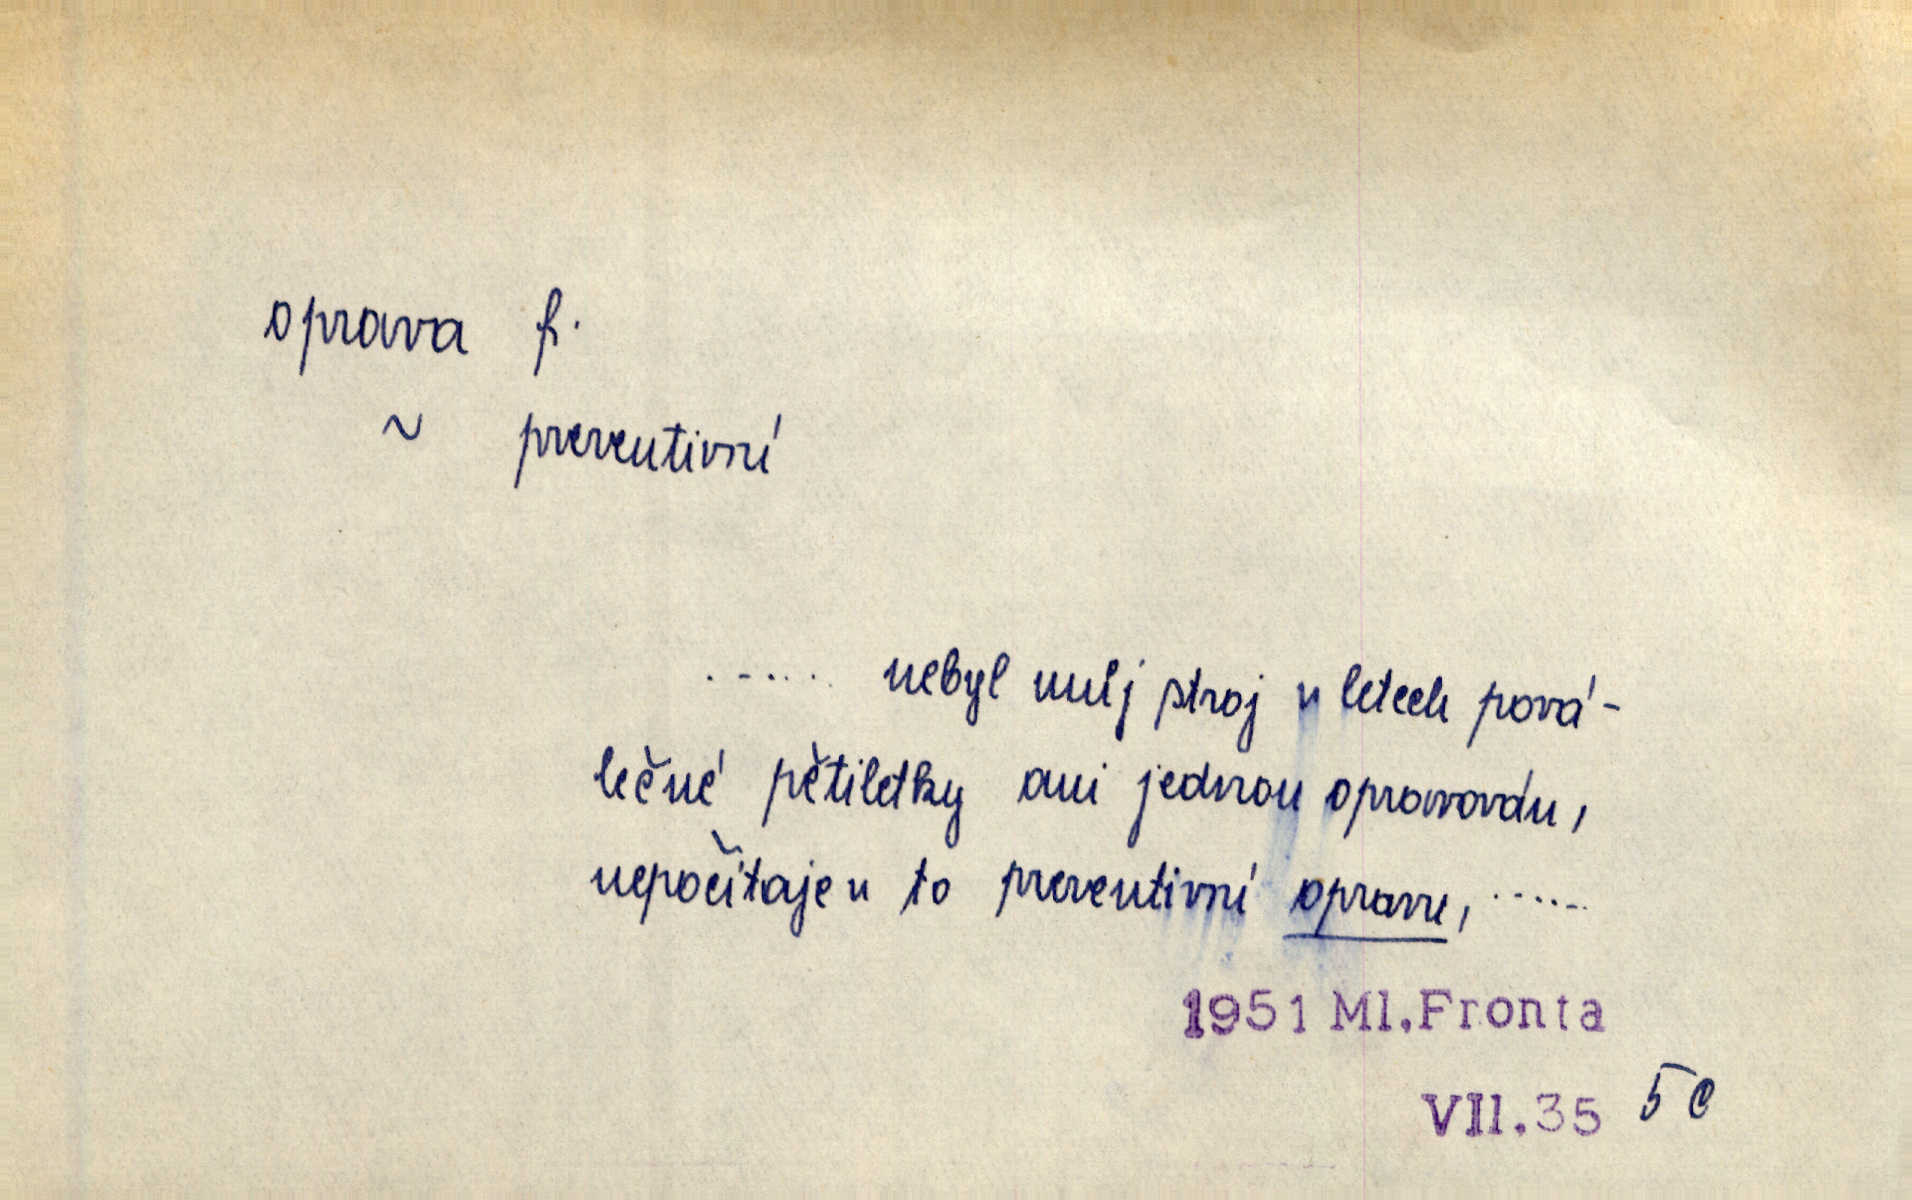 oprava f.
~ preventivní
...... nebyl můj stroj v letech pová-
lečné pětiletky ani jednou opravován,
nepočítaje v to preventivní opravu, ......
1951 Ml.Fronta
VII.35 5